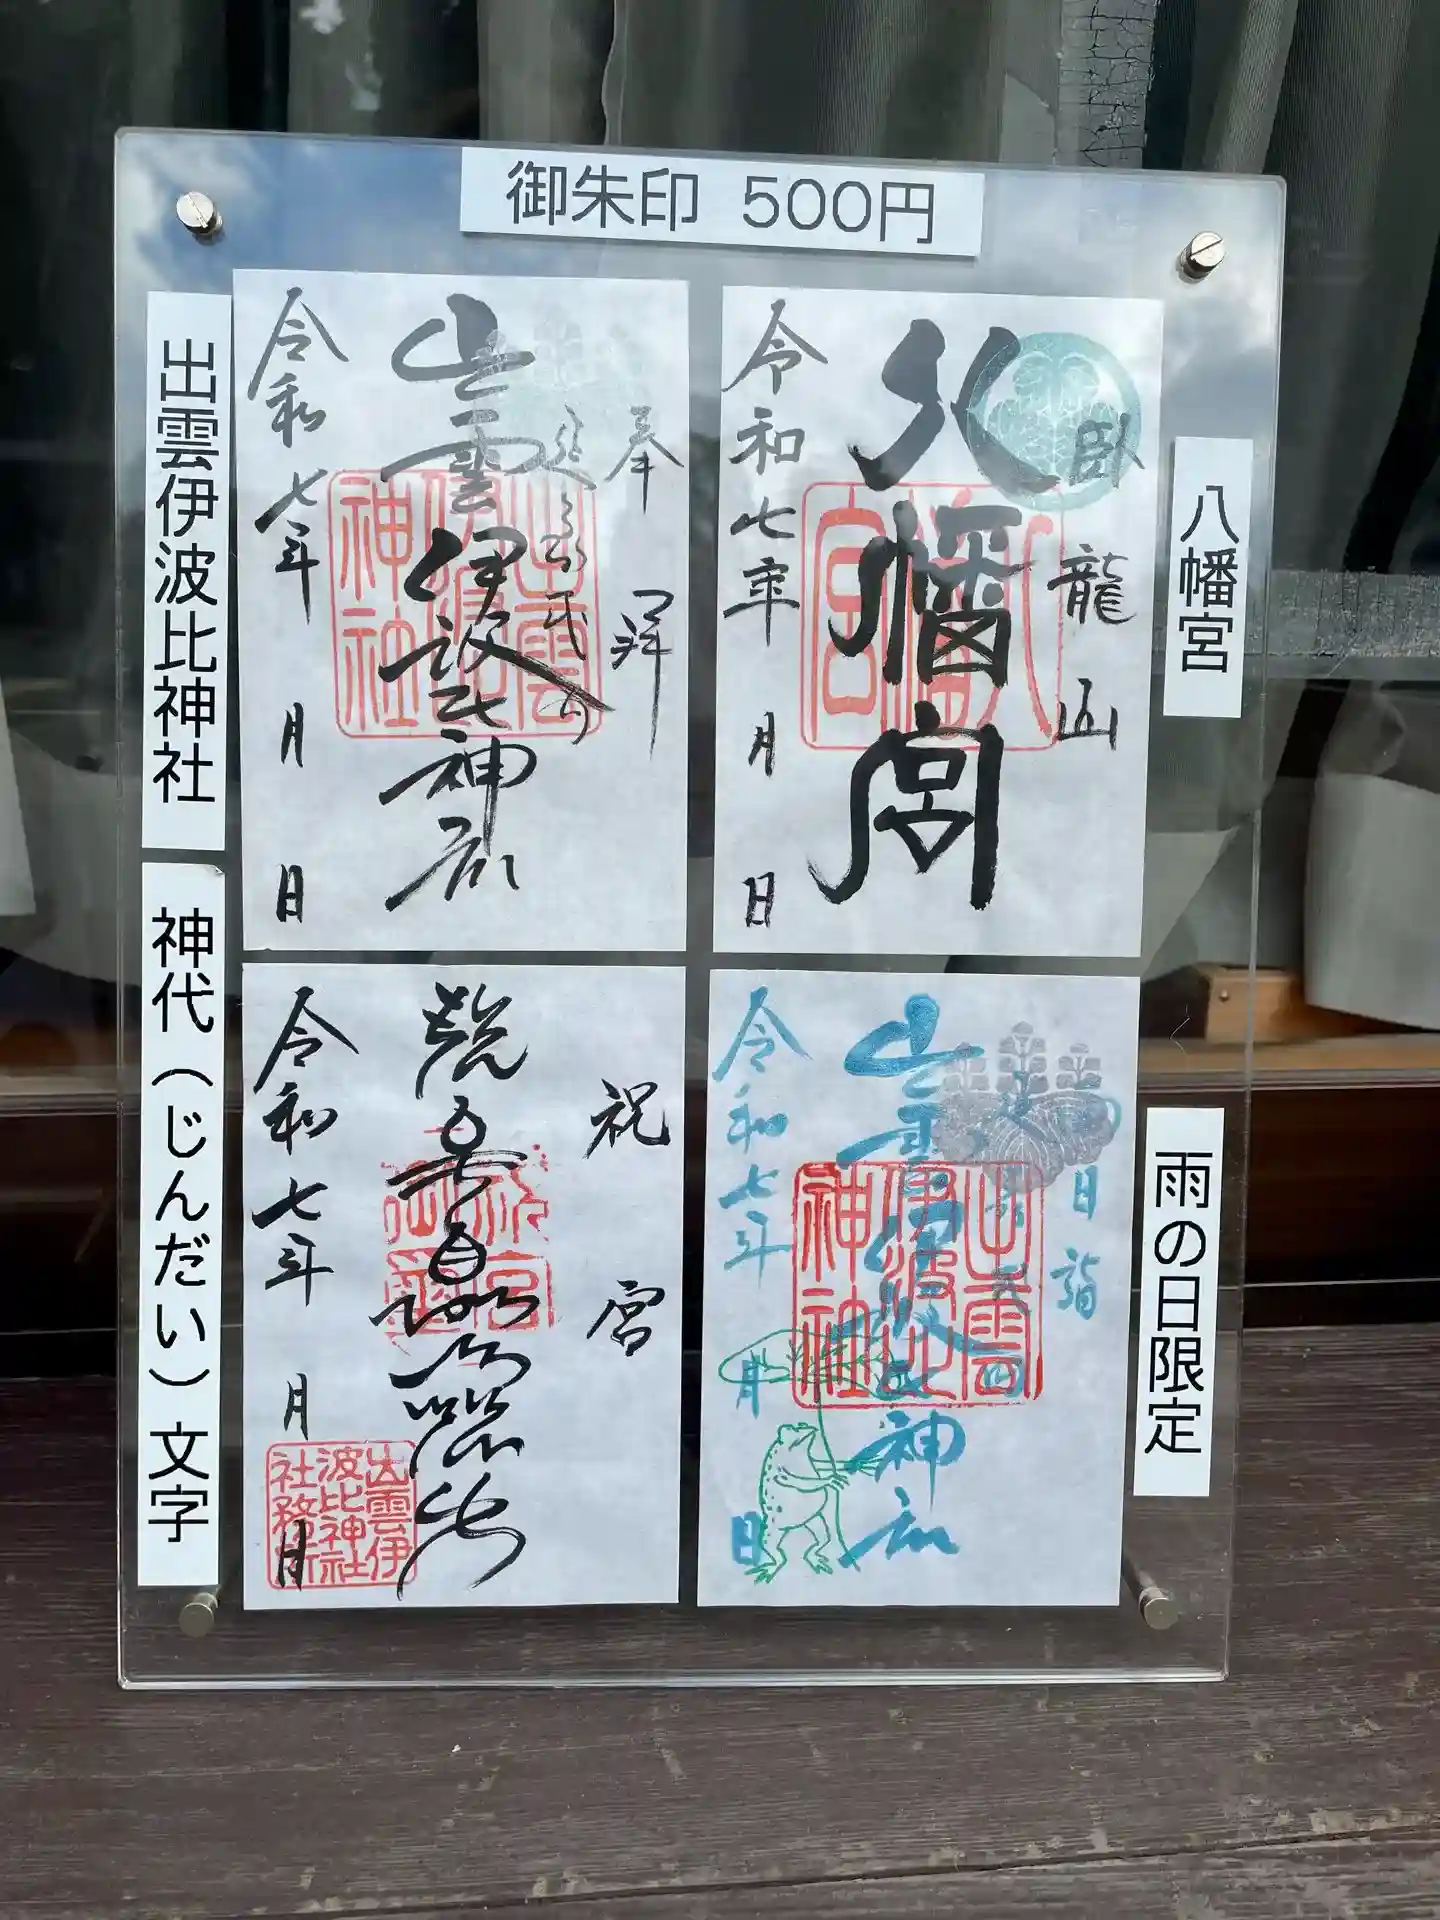 御朱印 500円
八幡宮
臥龍山
八幡宮
八幡宮
令和七年 月 日
出雲伊波比神社
奉拝
出雲伊波比神社
出雲伊波比神社
令和七年 月 日
雨の日限定
雨の日詣
出雲伊波比神社
出雲伊波比神社
令和七年 月 日
神代(じんだい)文字
祝宮
令和七年 月 日
出雲伊波比神社社務所